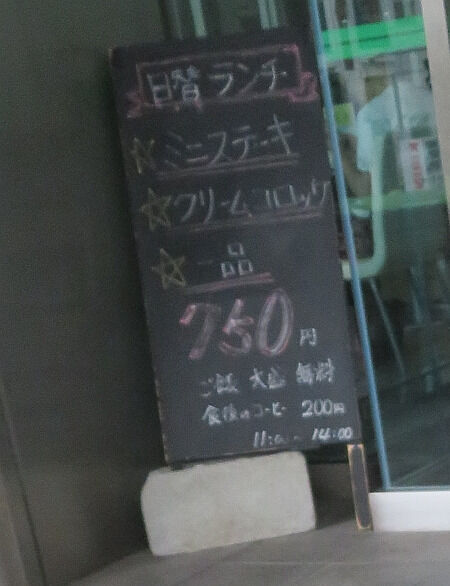 日替ランチ
☆ミニステーキ
☆クリームコロッケ
☆一品
750円
ご飯 大盛 無料
食後のコーヒー 200円
11:00~ 14:00